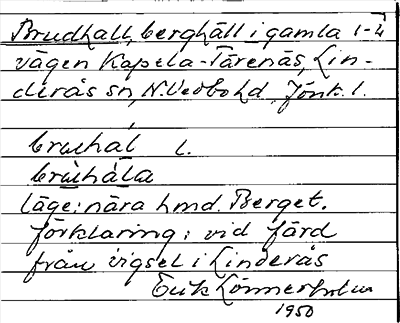 Brudhall, berghäll i gamla 1-4
vägen Kapela-Tärenäs, Lin-
derås sn, N. Vedbo hd, Jönk. l.
bruhal l.
bruhàla
läge: nära hmd. Berget.
förklaring: vid färd
från vigsel i Linderås
Erik Lönnerholm
1950